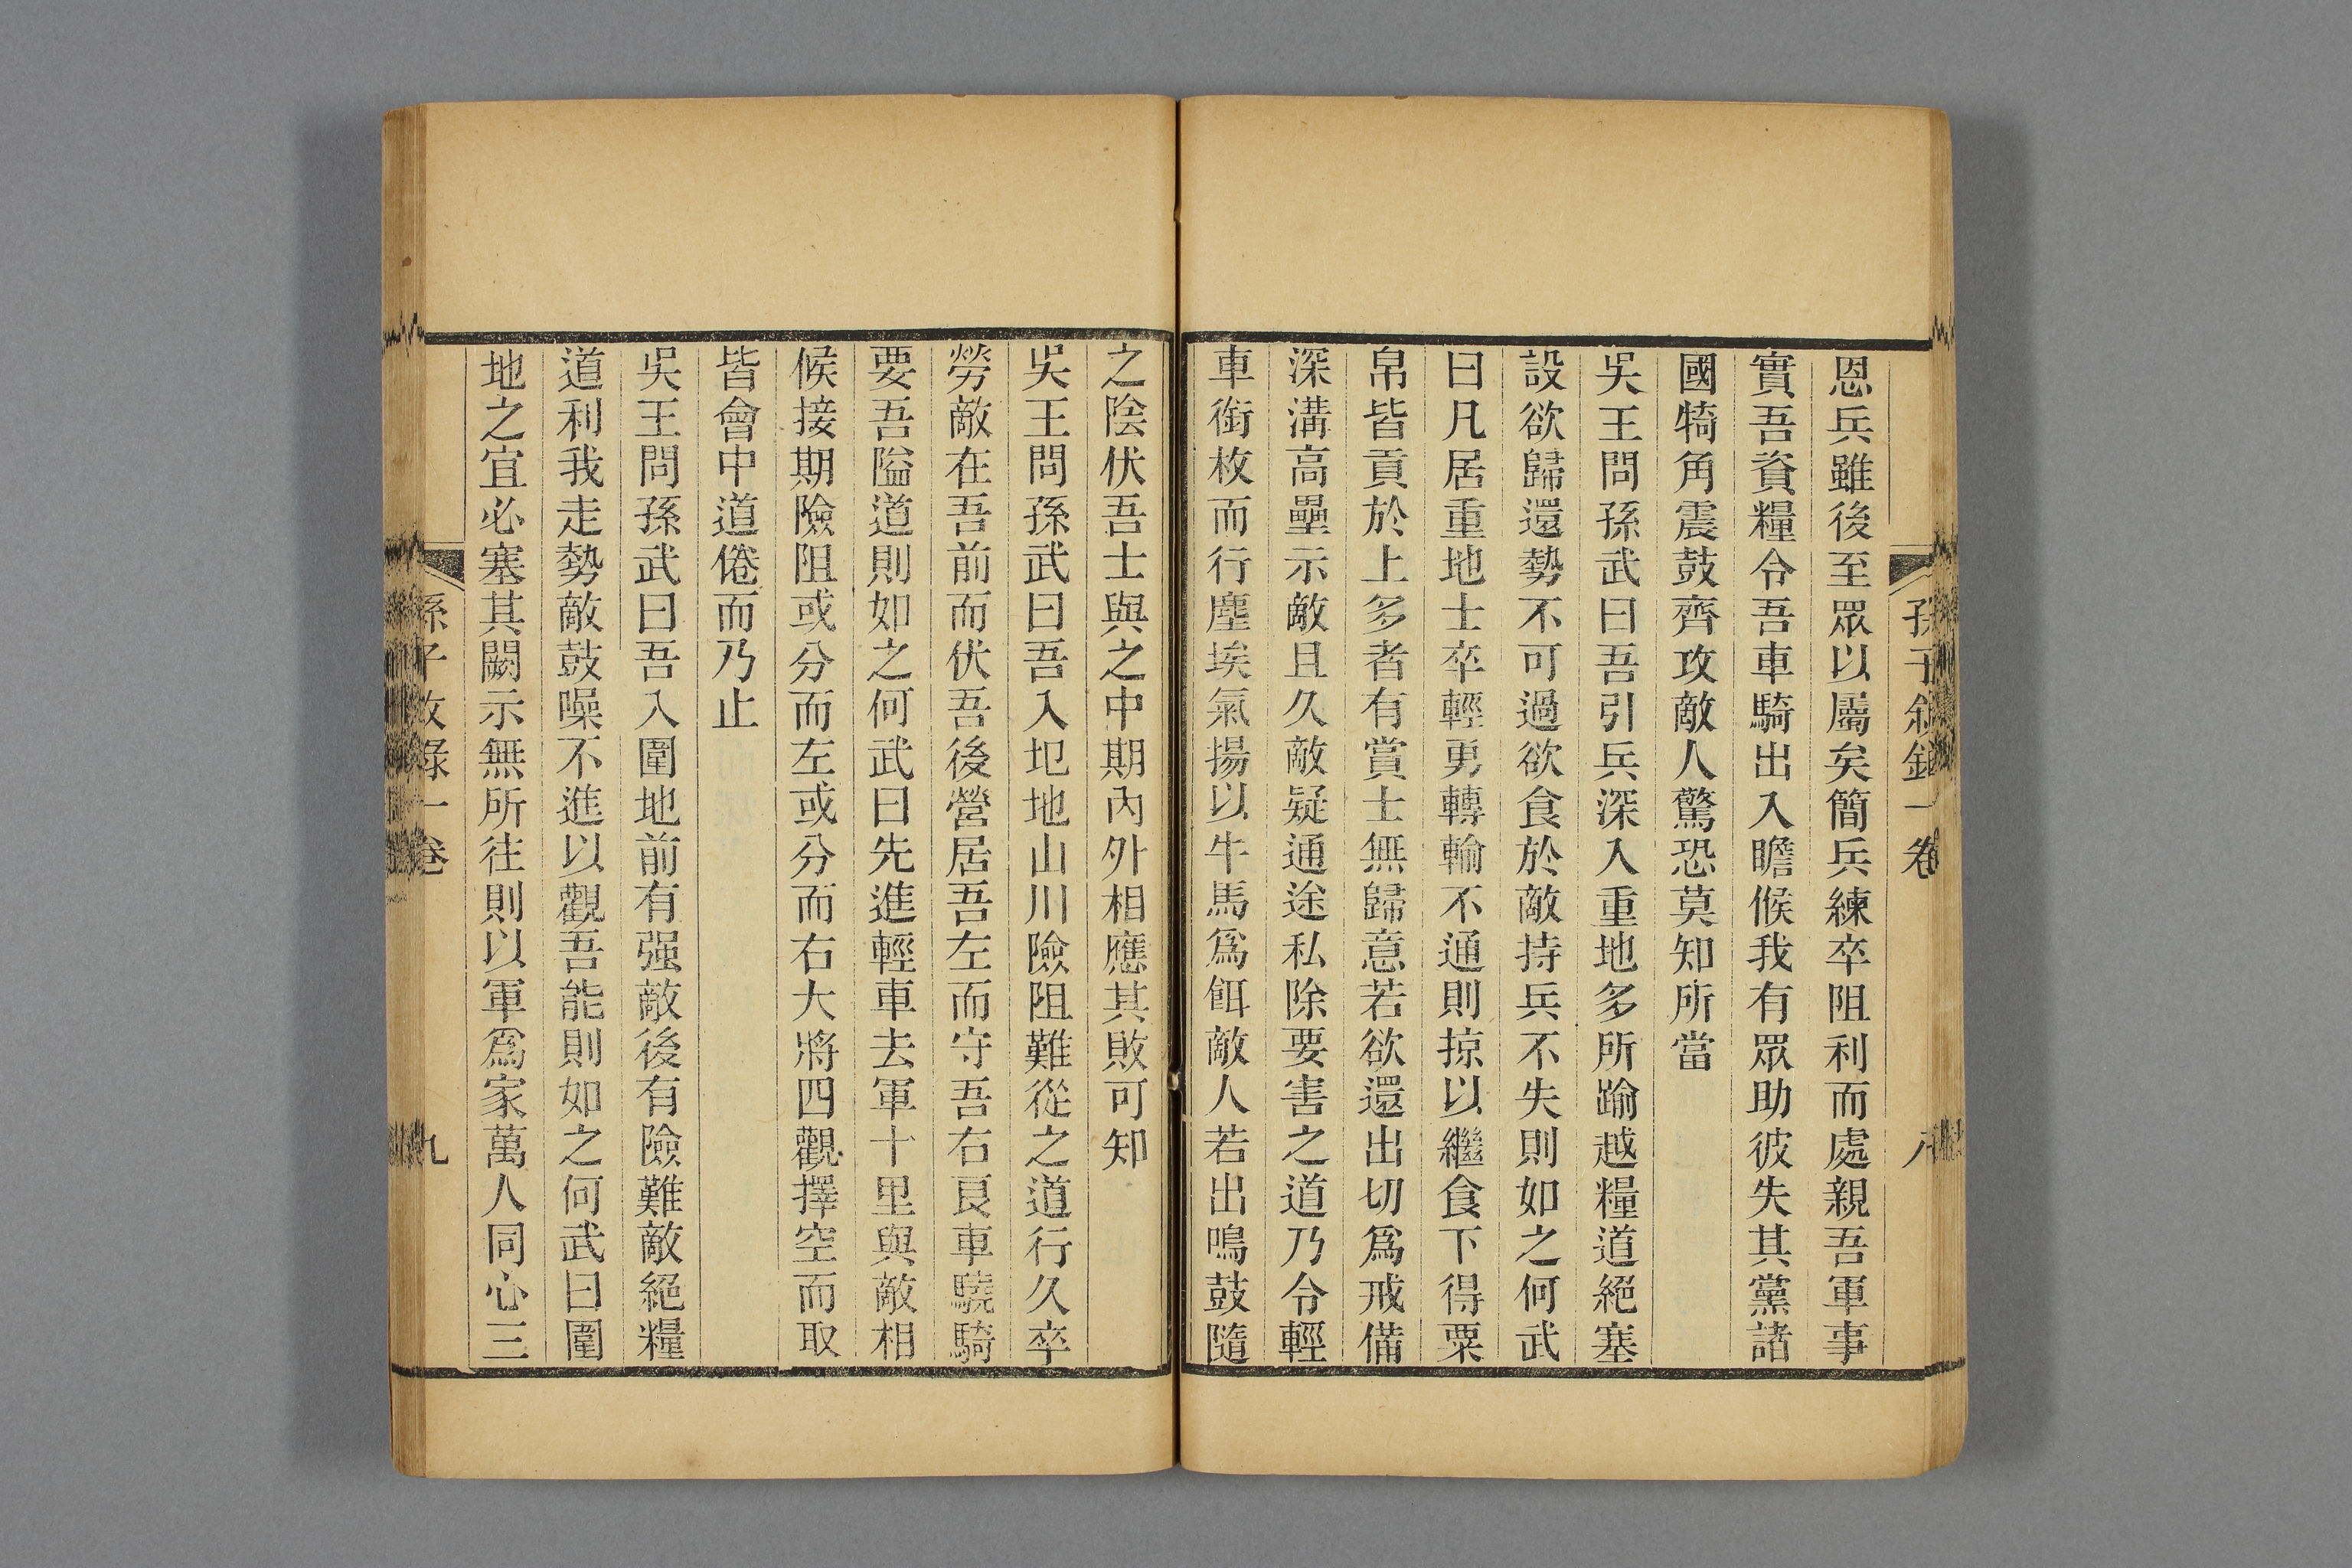 孫子敘錄一卷 八
恩兵雖後至眾以屬矣簡兵練卒阻利而處親吾軍事
實吾資糧令吾車騎出入瞻候我有眾助彼失其黨諸
國犄角震鼓齊攻敵人驚恐莫知所當
吳王問孫武曰吾引兵深入重地多所踰越糧道絕塞
設欲歸還勢不可過欲食於敵持兵不失則如之何武
曰凡居重地士卒輕勇轉輸不通則掠以繼食下得粟
帛皆貢於上多者有賞士無歸意若欲還出切為戒備
深溝高壘示敵且久敵疑通途私除要害之道乃令輕
車銜枚而行塵埃氣揚以牛馬為餌敵人若出鳴鼓隨
之陰伏吾士與之中期內外相應其敗可知
吳王問孫武曰吾入圯地山川險阻難從之道行久卒
勞敵在吾前而伏吾後營居吾左而守吾右良車驍騎
要吾隘道則如之何武曰先進輕車去軍十里與敵相
候接期險阻或分而左或分而右大將四觀擇空而取
皆會中道倦而乃止
吳王問孫武曰吾入圍地前有强敵後有險難敵絕糧
道利我走勢敵鼓噪不進以觀吾能則如之何武曰圍
地之宜必塞其闕示無所往則以軍為家萬人同心三
孫子敘錄一卷 九